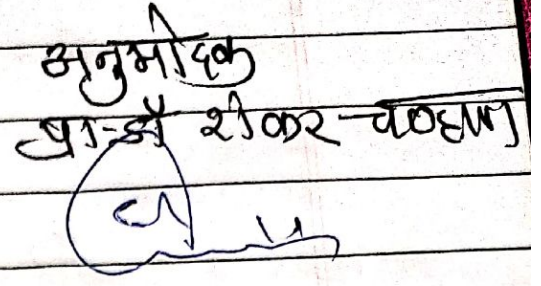 अनुमोदक
प्रा-डॉ शंकर चव्हाण